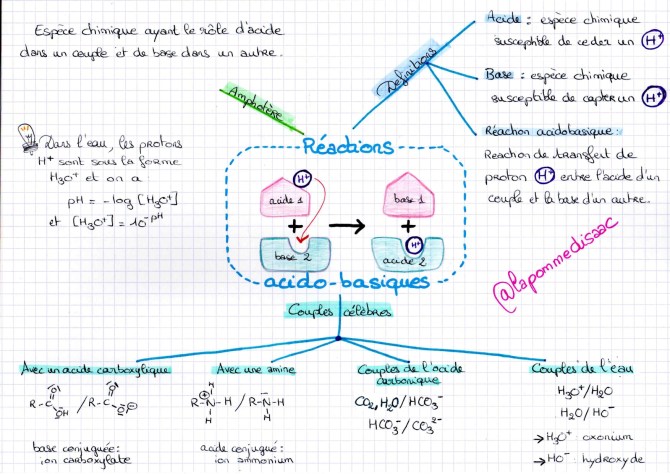 Espèce chimique ayant le rôle d'acide
dans un couple et de base dans un autre.
Amphotère
Définitions
Acide : espèce chimique
susceptible de céder un H⁺
Base : espèce chimique
susceptible de capter un H⁺
Réaction acidobasique :
Réaction de transfert de
proton H⁺ entre l'acide d'un
couple et la base d'un autre.
Dans l'eau, les protons
H⁺ sont sous la forme
H₃O⁺ et on a
pH = -log [H₃O⁺]
et [H₃O⁺] = 10^-pH
Réactions
H⁺
acide 1
+
base 2
base 1
+
H⁺
acide 2
acido-basiques
@lapommedisaac
Couples célèbres
Avec un acide carboxylique
R-C O OH / R-C O O⊖
base conjuguée :
ion carboxylate
Avec une amine
H
R-N⊕-H / R-N-H
H H
acide conjugué :
ion ammonium
Couples de l'acide
carbonique
CO₂,H₂O/HCO₃⁻
HCO₃⁻/CO₃²⁻
Couples de l'eau
H₃O⁺/H₂O
H₂O/HO⁻
→ H₃O⁺ : oxonium
→ HO⁻ : hydroxyde